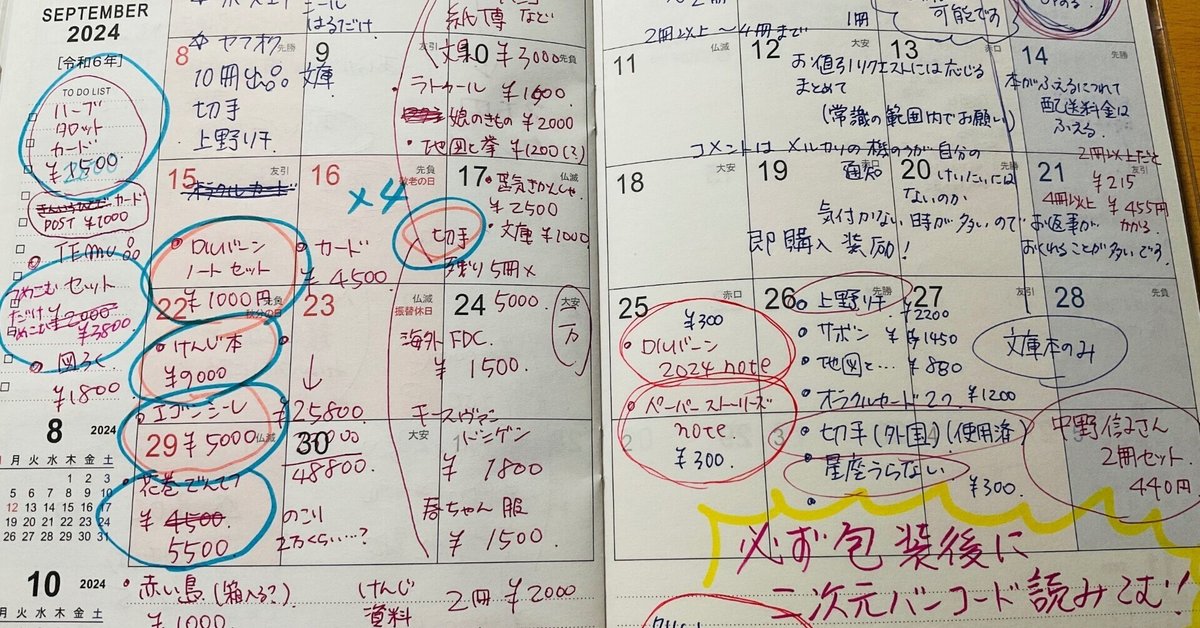 SEPTEMBER
2024
[令和6年]
TO DO LIST
ハーブ
タロット
カード
¥1500
カード
POST ¥1000
TEMU
セット
だけ ¥2000
¥3800
図ろく
¥1800
8 2024
月 火 水 木 金 土
1 2 3
5 6 7 8 9 10
12 13 14 15 16 17
19 20 21 22 23 24
26 27 28 29 30 31
10 2024
月 火 水 木 金 土
はるだけ
紙博 など
8 先勝
☆ ヤフオク
10冊出品 文庫
切手
上野リチ
9 友引
10 先負
文具 ¥3000
・ラトゥール ¥1600
娘のきもの ¥2000
・地図と拳 ¥1200
15 友引
オラクルカード
16 先負
敬老の日
×4
17 仏滅
¥2500
・文庫 ¥1000
切手
残り5冊×
DIUバーン
ノートセット
¥1000円
カード
¥4500
22 先負
秋分の日
・けんじ本
¥9000
23 仏滅
振替休日
↓
¥25800
24 大安
5000
万
海外 FDC.
¥1500
・エゴンシーレ
29 ¥5000 仏滅
30 大安
48800.
花巻でんしゃ
¥4500
5500
のこり
2万くらい…?
¥1800
春ちゃん 服
¥1500
・赤い鳥
¥1000
けんじ
資料
2冊 ¥2000
可能です
2冊以上〜4冊まで
1冊
11 仏滅
12 大安
13 赤口
14 先勝
お値引リクエストには応じる
まとめて
(常識の範囲内でお願い)
本がふえるにつれて
配送料金は
ふえる。
コメントは メルカリの機のうが自分の
18 大安
19 赤口
20 先勝
21 友引
通知
けいたいには
ないのか
気付かない 時が多いので
即購入 奨励!
2冊以上だと
¥215
4冊以上 ¥455円
かかる
お返事が
おくれることが多いです
25 赤口
¥300
・DIUバーン
2024 note
26 先勝
・上野リチ ¥2200
・サボン ¥1450
・地図と… ¥880
・オラクルカード2つ ¥1200
27 友引
28 先負
文庫本のみ
・ペーパーストーリーズ
note.
¥300.
・切手(外国)(使用済)
星座うらない
¥300.
中野信子さん
2冊セット.
440円
必ず包装後に
二次元バーコード読みこむ!